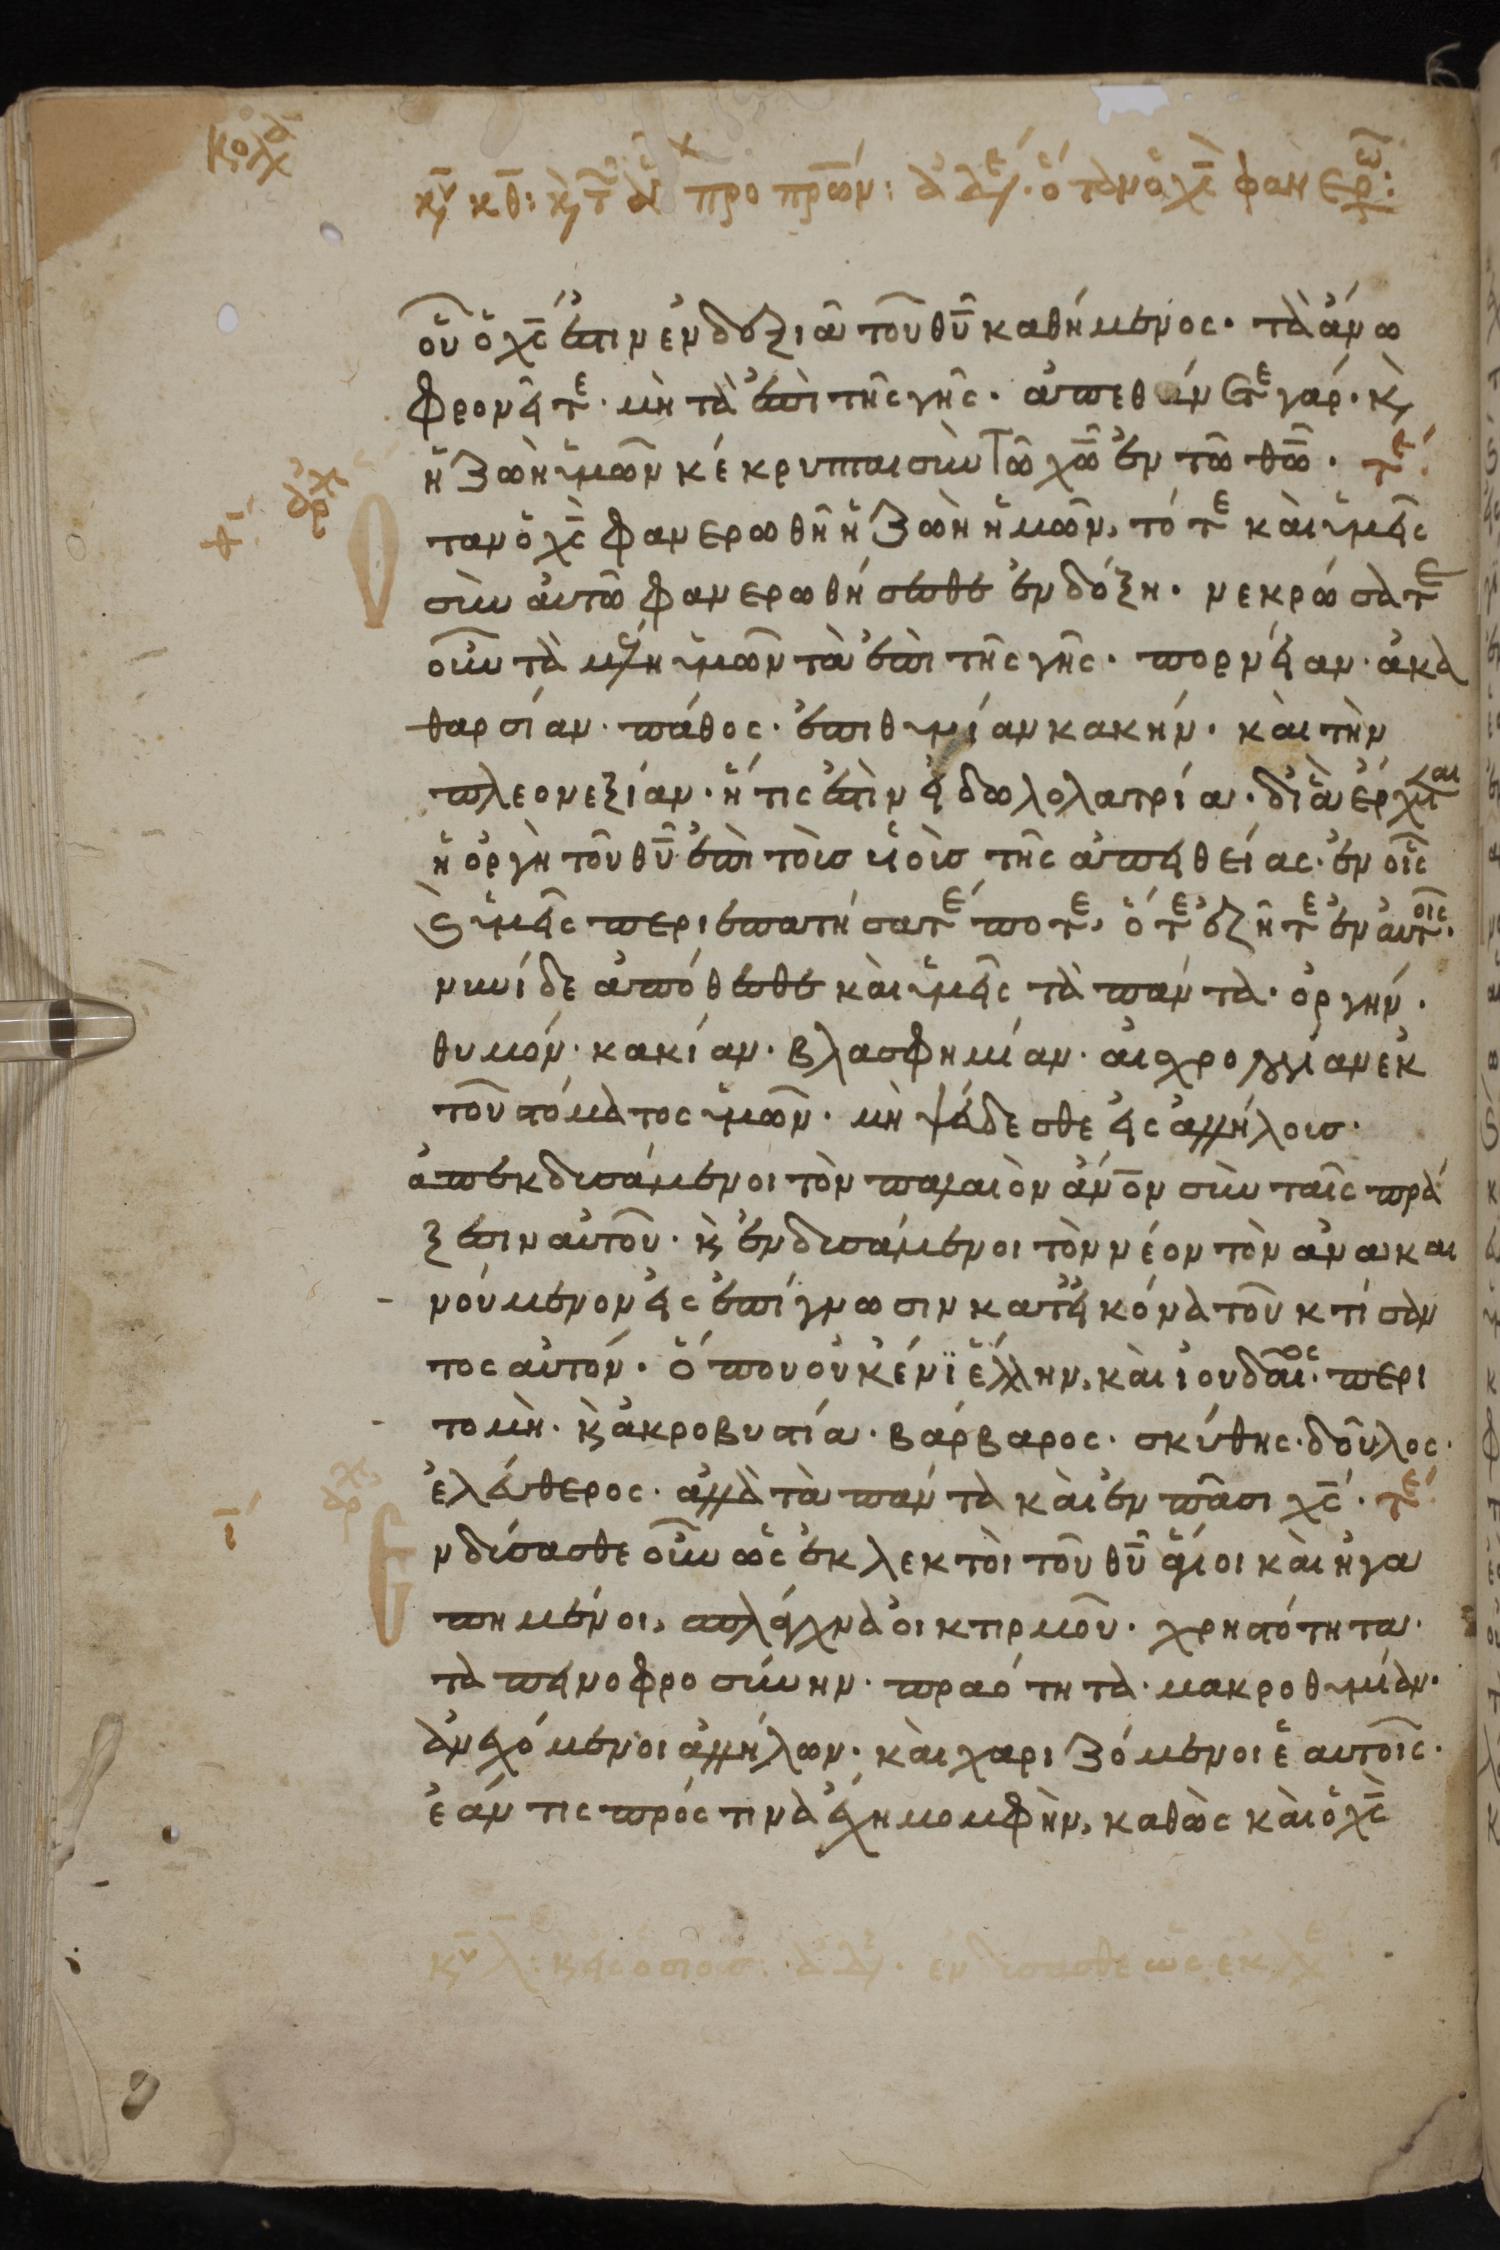 κολα
κυ κθ: κτ προ πρων: ἀδελ. ὅταν ὁ χς φανερ:
οὗ ὁ χς ἐστιν ἐν δοξιᾶ τοῦ θυ καθήμενος· τὰ ἄνω
φρονεῖτε· μὴ τὰ ἐπὶ τῆς γῆς· ἀπεθάνετε γάρ· κ
ἡ ζωὴ ὑμῶν κέκρυπται σὺν τῶ χω ἐν τῶ θω· τε
ἀρχ
θ
ταν ὁ χς φανερωθῆ ἡ ζωὴ ἡμῶν, τότε καὶ ὑμεῖς
σὺν αὐτῶ φανερωθήσεσθε ἐν δόξη· νεκρώσατε
οὖν τὰ μέλη ὑμῶν τὰ ἐπὶ τῆς γῆς· πορνείαν· ἀκα
θαρσίαν· πάθος· ἐπιθυμίαν κακήν· καὶ τὴν
πλεονεξίαν· ἥτις ἐστὶν εἰδωλολατρία· δι ἃ ἔρχεται
ἡ ὀργὴ τοῦ θυ ἐπὶ τοὶσ υἱοὶσ τῆς ἀπειθείας· ἐν οἷς
κ ὑμεῖς περιεπατήσατέ ποτε, ὅτε ἐζῆτε ἐν αὐτοῖς·
νυνί δε ἀπόθεσθε καὶ ὑμεῖς τὰ πάντα· ὀργήν·
θυμόν· κακίαν· βλασφημίαν· αἰσχρολογίαν ἐκ
τοῦ στόματος ὑμῶν· μὴ ψεύδεσθε εἰς ἀλλήλοισ·
ἀπεκδυσάμενοι τὸν παλαιὸν ἄνον σὺν ταῖς πρά
ξεσιν αὐτοῦ· κ ἐνδυσάμενοι τὸν νέον τὸν ἀνακαι
νούμενον εἰς ἐπίγνωσιν κατ εἰκόνα τοῦ κτίσαν
τος αὐτόν· ὅπου οὐκ ἔνϊ ἕλλην, καὶ ἰουδαῖος· περι
τομὴ· κ ἀκροβυστία· βάρβαρος· σκύθης· δοῦλος·
ἐλεύθερος· ἀλλὰ τὰ πάντα καὶ ἐν πᾶσι χς· τε
ἀρχ
ι
Ενδύσασθε οὖν ὡς ἐκλεκτοὶ τοῦ θυ ἅγιοι καὶ ἠγα
πημένοι, σπλάγχνα οἰκτιρμοῦ· χρηστότητα·
ταπεινοφροσύνην· πραότητα· μακροθυμίαν·
ἀνεχόμενοι ἀλλήλων· καὶ χαριζόμενοι ἑαυτοῖς·
ἐάν τις πρός τινα ἔχη μομφὴν, καθὼς καὶ ὁ χς
κυ λ: ἀδελ· ἐνδύσασθε ὡς ἐκλε: